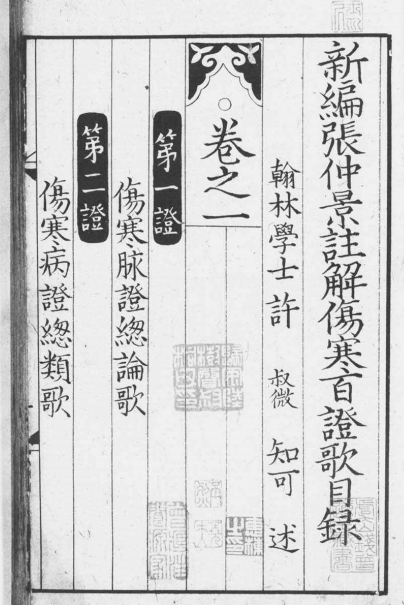 新編張仲景註解傷寒百證歌目録
翰林學士許 叔微 知可 述
卷之一
第一證
傷寒脉證總論歌
第二證
傷寒病證總類歌